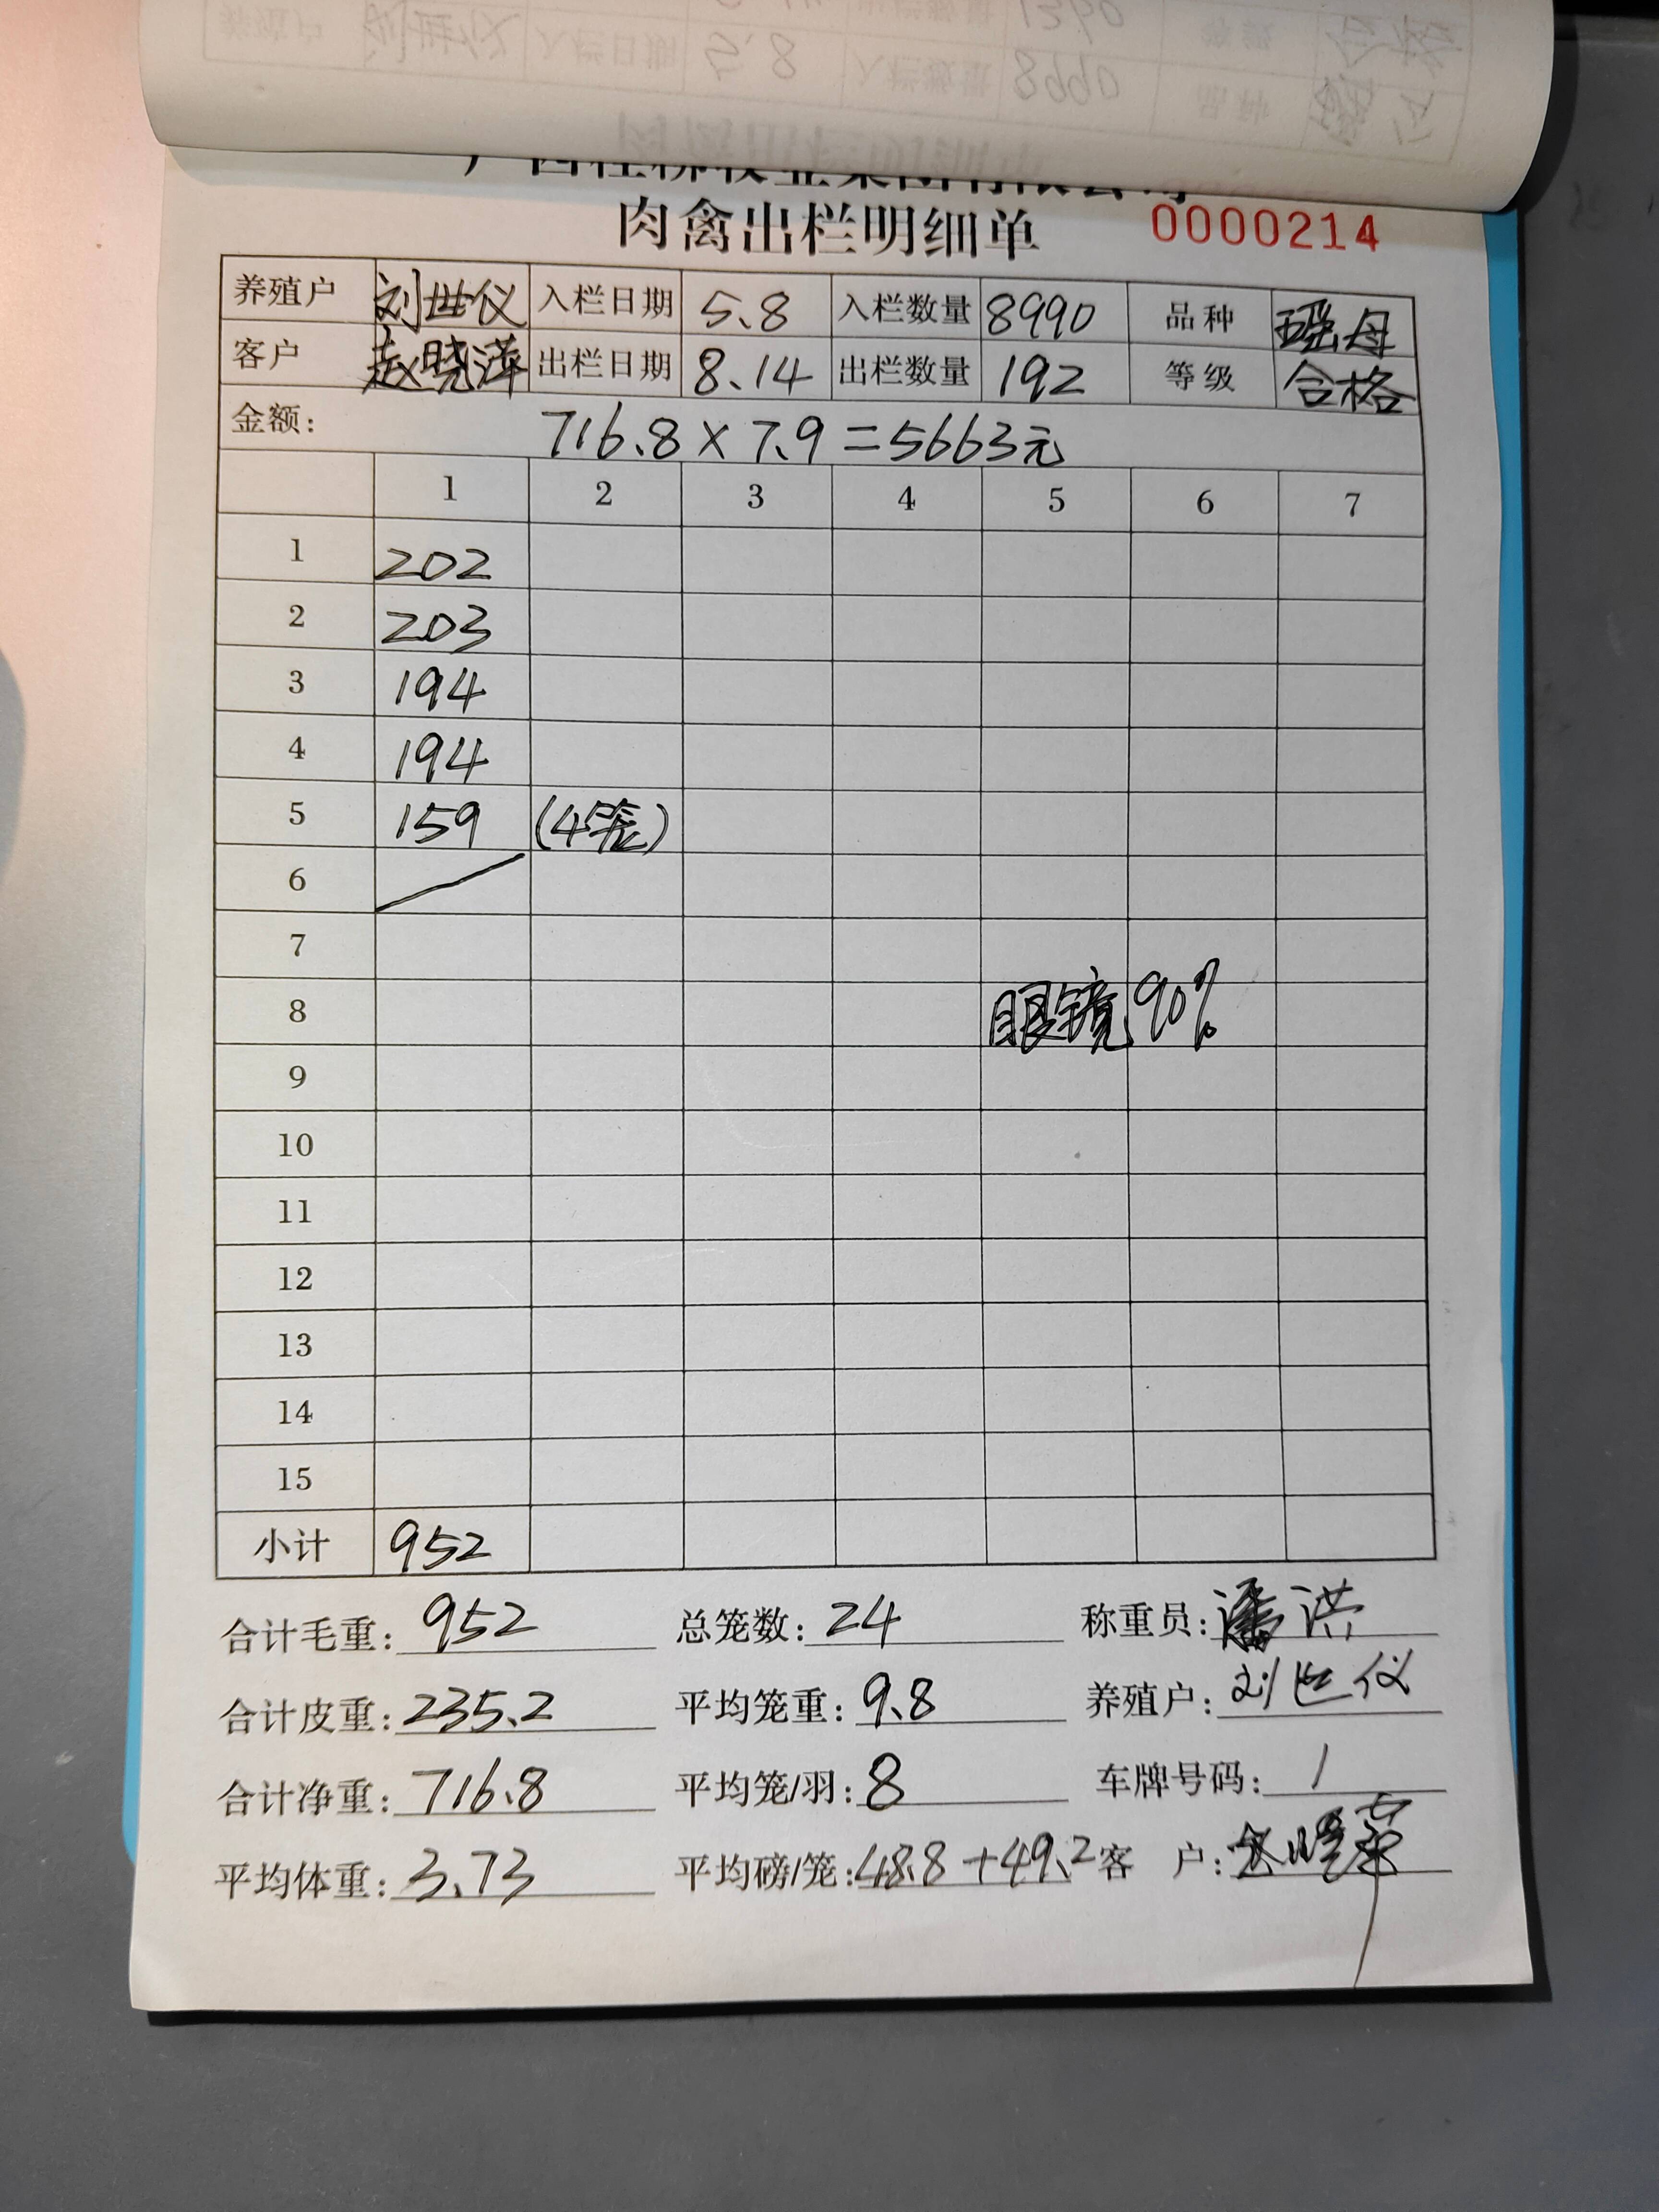 肉禽出栏明细单 0000214
养殖户 刘世仪 入栏日期 5.8 入栏数量 8990 品种 瑶母
客户 赵晓萍 出栏日期 8.14 出栏数量 192 等级 合格
金额: 716.8×7.9=5663元
1 2 3 4 5 6 7
1 202
2 203
3 194
4 194
5 159 (4笼)
6
7
8 眼镜90%
9
10
11
12
13
14
15
小计 952
合计毛重: 952 总笼数: 24 称重员: 潘洪
合计皮重: 235.2 平均笼重: 9.8 养殖户: 刘世仪
合计净重: 716.8 平均笼/羽: 8 车牌号码: /
平均体重: 3.73 平均磅/笼: 48.8+49.2 客户: